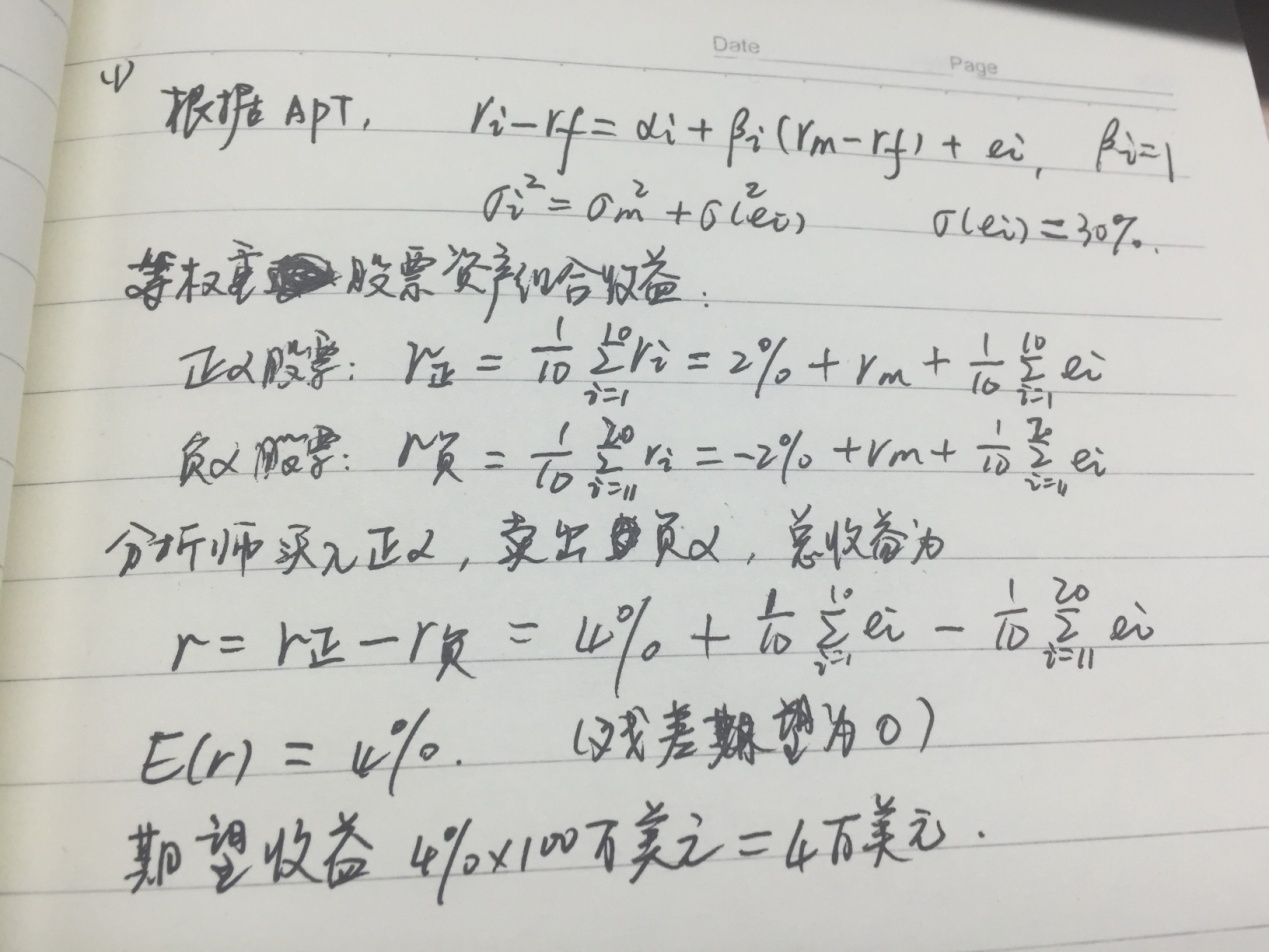 Date
Page
(1)
根据APT, ri-rf=αi+βi(rm-rf)+ei, βi=1
σi²=σm²+σ²(ei) σ(ei)=30%.
等权重股票资产组合收益:
正α股票: r正=1/10 Σ(i=1→10) ri=2%+rm+1/10 Σ(i=1→10) ei
负α股票: r负=1/10 Σ(i=11→20) ri=-2%+rm+1/10 Σ(i=11→20) ei
分析师买入正α, 卖出负α, 总收益为
r=r正-r负=4%+1/10 Σ(i=1→10) ei-1/10 Σ(i=11→20) ei
E(r)=4%. (残差期望为0)
期望收益 4%×100万美元=4万美元.